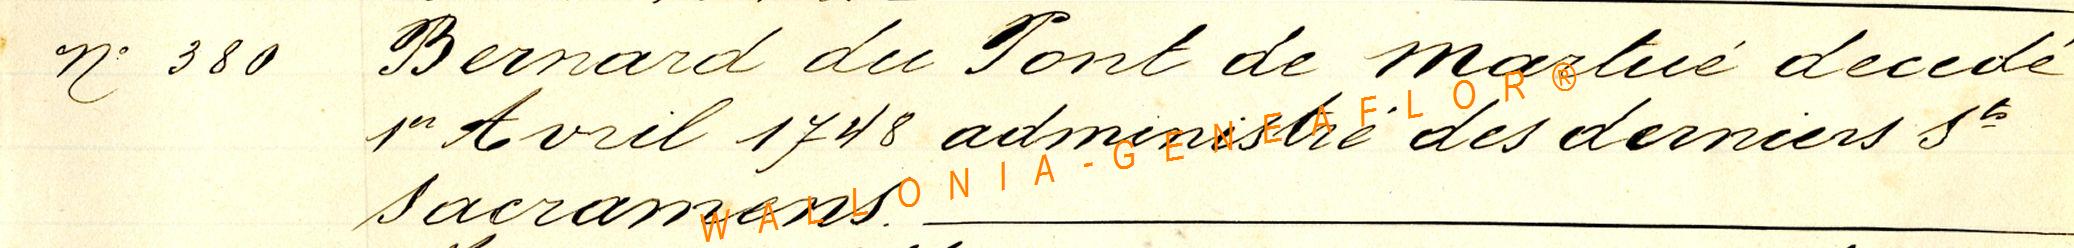 N° 380 Bernard du Pont de Martué decedé
1er Avril 1748 administré des derniers Sts
Sacramens.
WALLONIA-GENEAFLOR®